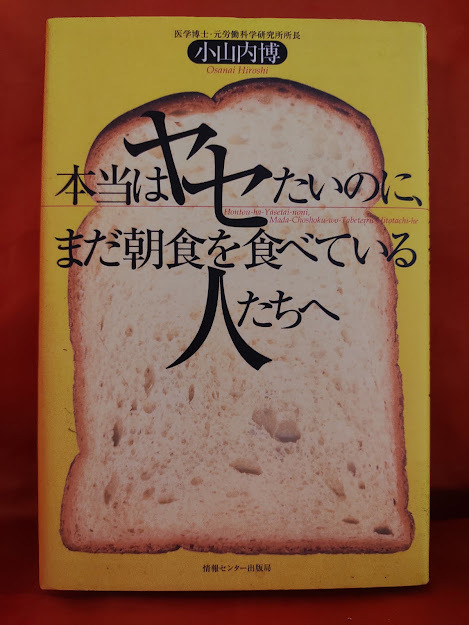 医学博士・元労働科学研究所所長
小山内博
Osanai Hiroshi
本当はヤセたいのに、
Hontou-ha-Yasetai-noni,
Mada-Choshoku-wo-Tabeteiru-Hitotachi-he
まだ朝食を食べている
人たちへ
情報センター出版局